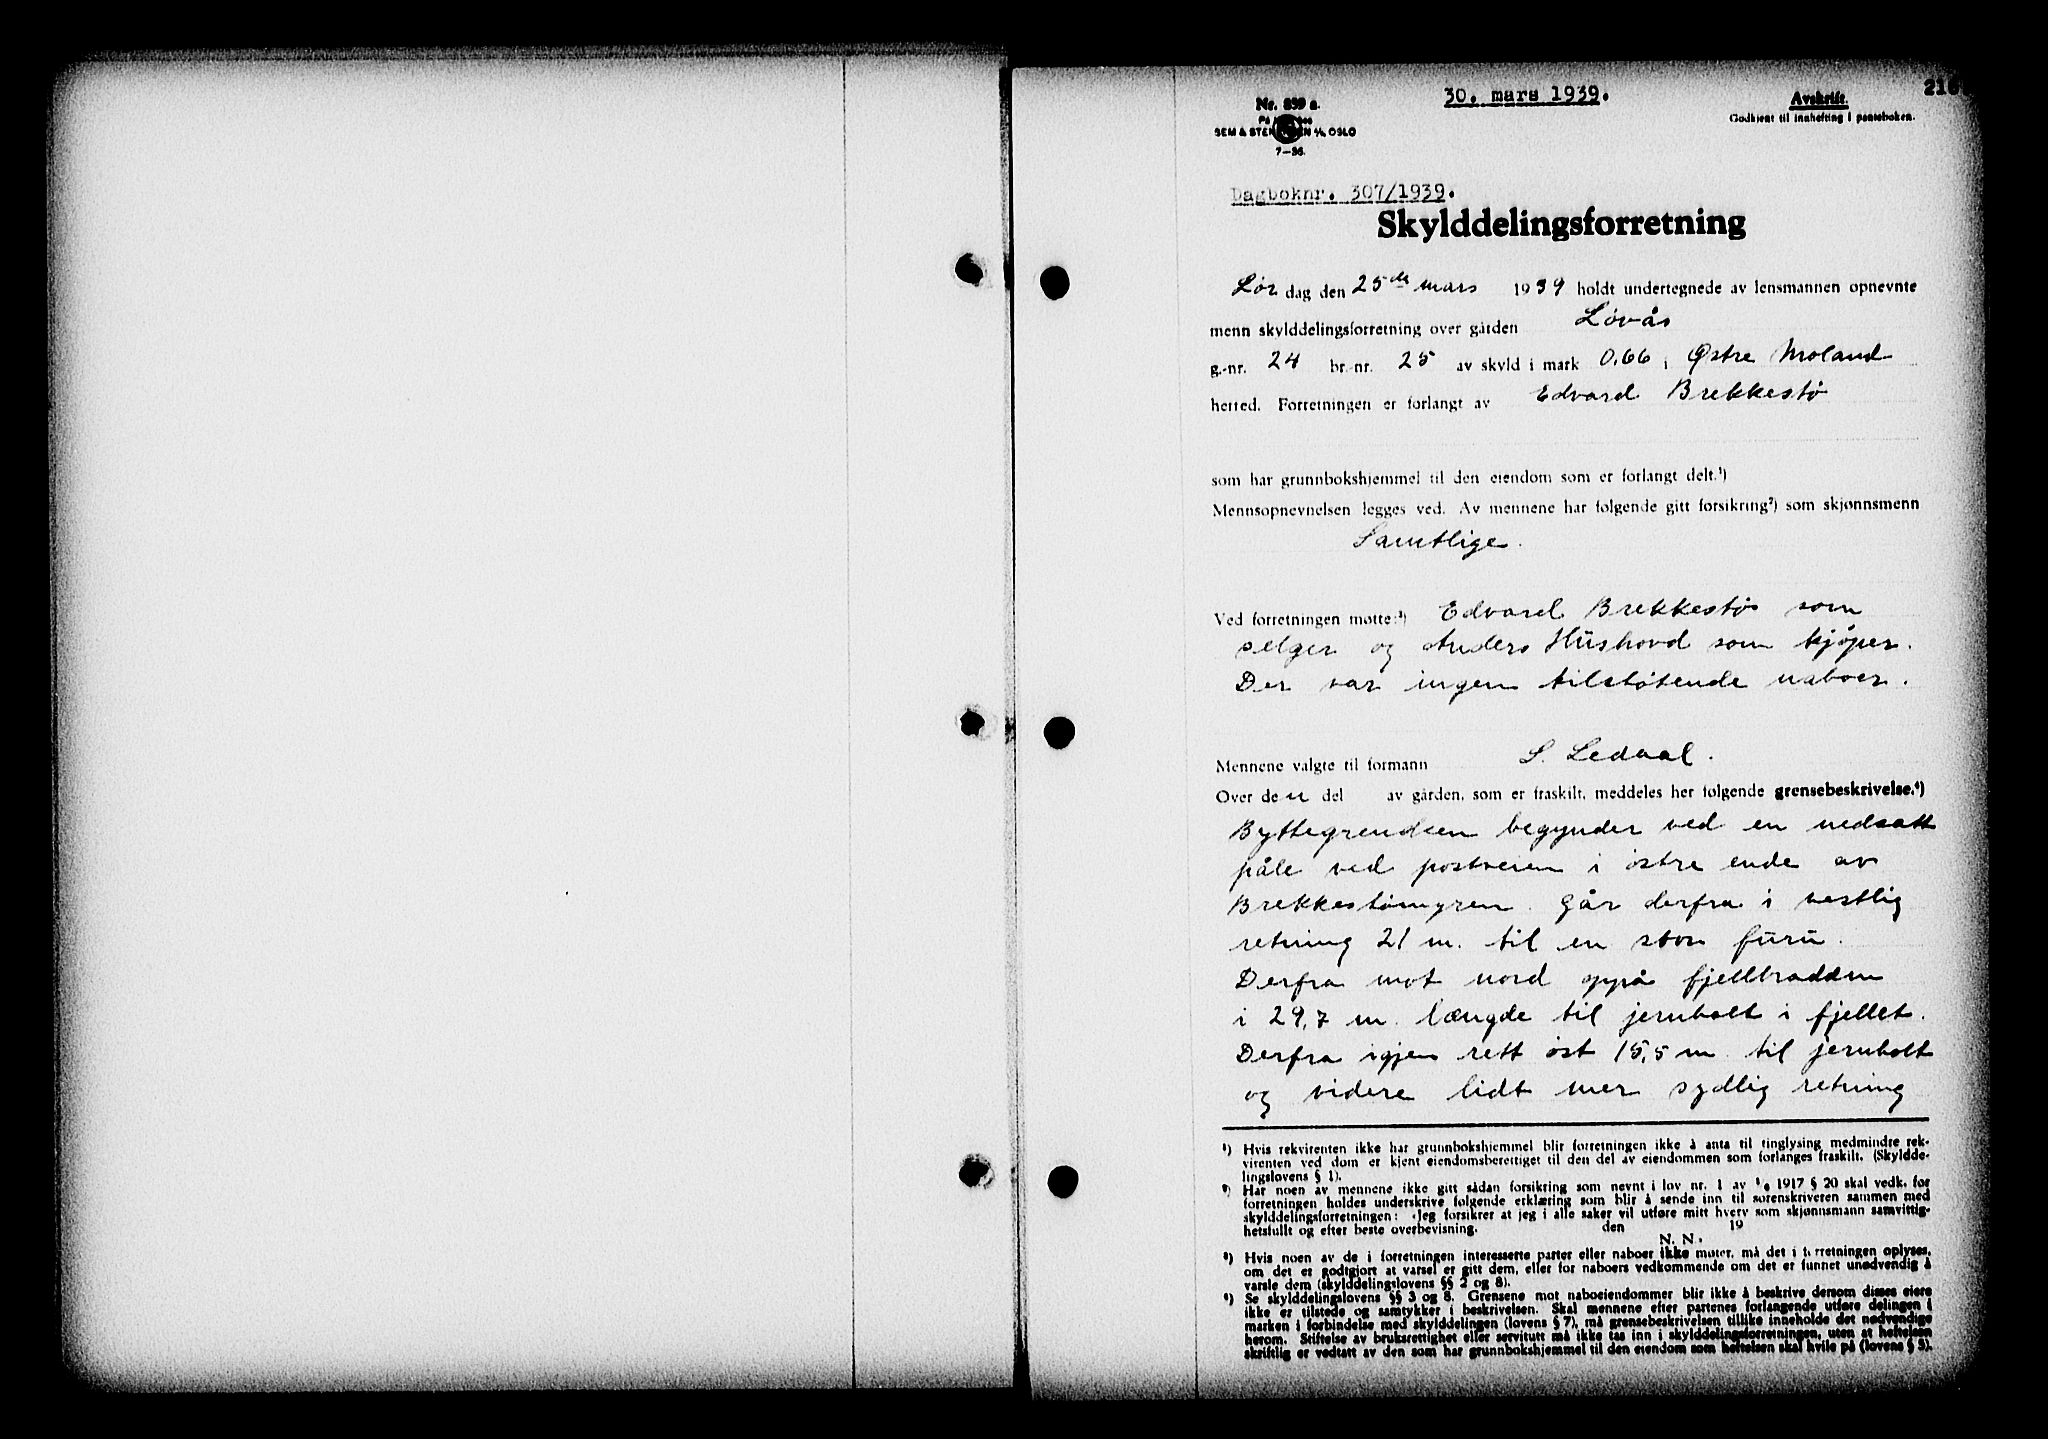 30. mars 1939.
Nr. 839 a.
Avskrift.
Godkjent til innhefting i panteboken.
SEM & STEN
OSLO
7-36.
Dagboknr. 307/1939.
Skylddelingsforretning
Lør dag den 25de mars 1939 holdt undertegnede av lensmannen opnevnte
menn skylddelingsforretning over gården Løvås
g.-nr. 24 br.-nr. 25 av skyld i mark 0,66 i Østre Moland
herred. Forretningen er forlangt av Edvard Brekkestø
som har grunnbokshjemmel til den eiendom som er forlangt delt.¹)
Mennsopnevnelsen legges ved. Av mennene har følgende gitt forsikring²) som skjønnsmenn
Samtlige.
Ved forretningen møtte:³) Edvard Brekkestø som
selger og Anders Hüshovd som kjøper.
Der var ingen tilstøtende naboer.
Mennene valgte til formann S. Ledaal.
Over den del av gården, som er fraskilt, meddeles her følgende grensebeskrivelse.⁴)
Byttegrendsen begynder ved en nedsatt
påle ved postveien i østre ende av
Brekkestømyren. Går derfra i vestlig
retning 21 m. til en stor furu.
Derfra mot nord oppå fjellbradden
i 29,7 m. længde til jernbolt i fjellet.
Derfra igjen rett øst 15,5 m. til jernbolt
og videre lidt mer sydlig retning
¹) Hvis rekvirenten ikke har grunnbokshjemmel blir forretningen ikke å anta til tinglysing medmindre rek-
virenten ved dom er kjent eiendomsberettiget til den del av eiendommen som forlanges fraskilt. (Skyldde-
lingslovens § 1).
²) Har noen av mennene ikke gitt sådan forsikring som nevnt i lov nr. 1 av 1917 § 20 skal vedk. før
forretningen holdes underskrive følgende erklæring som blir å sende inn til sorenskriveren sammen med
skylddelingsforretningen: «Jeg forsikrer at jeg i alle saker vil utføre mitt hverv som skjønnsmann samvittig-
hetsfullt og efter beste overbevisning. den 19
N. N.
³) Hvis noen av de i forretningen interesserte parter eller naboer ikke møter, må det i forretningen oplyses,
om det er godtgjort at varsel er gitt dem, eller for naboers vedkommende om det er funnet unødvendig å
varsle dem (skylddelingslovens §§ 2 og 8).
⁴) Se skylddelingslovens §§ 3 og 8. Grensene mot naboeiendommer blir ikke å beskrive dersom disses eiere
ikke er tilstede og samtykker i beskrivelsen. Skal mennene efter partenes forlangende utføre delingen i
marken i forbindelse med skylddelingen (lovens § 7), må grensebeskrivelsen tillike inneholde det nødvendige
herom. Stiftelse av bruksrettighet eller servitutt må ikke tas inn i skylddelingsforretningen, uten at heftelsen
skriftlig er vedtatt av den som har grunnbokshjemmel til den eiendom som heftelsen skal hvile på (lovens § 5).